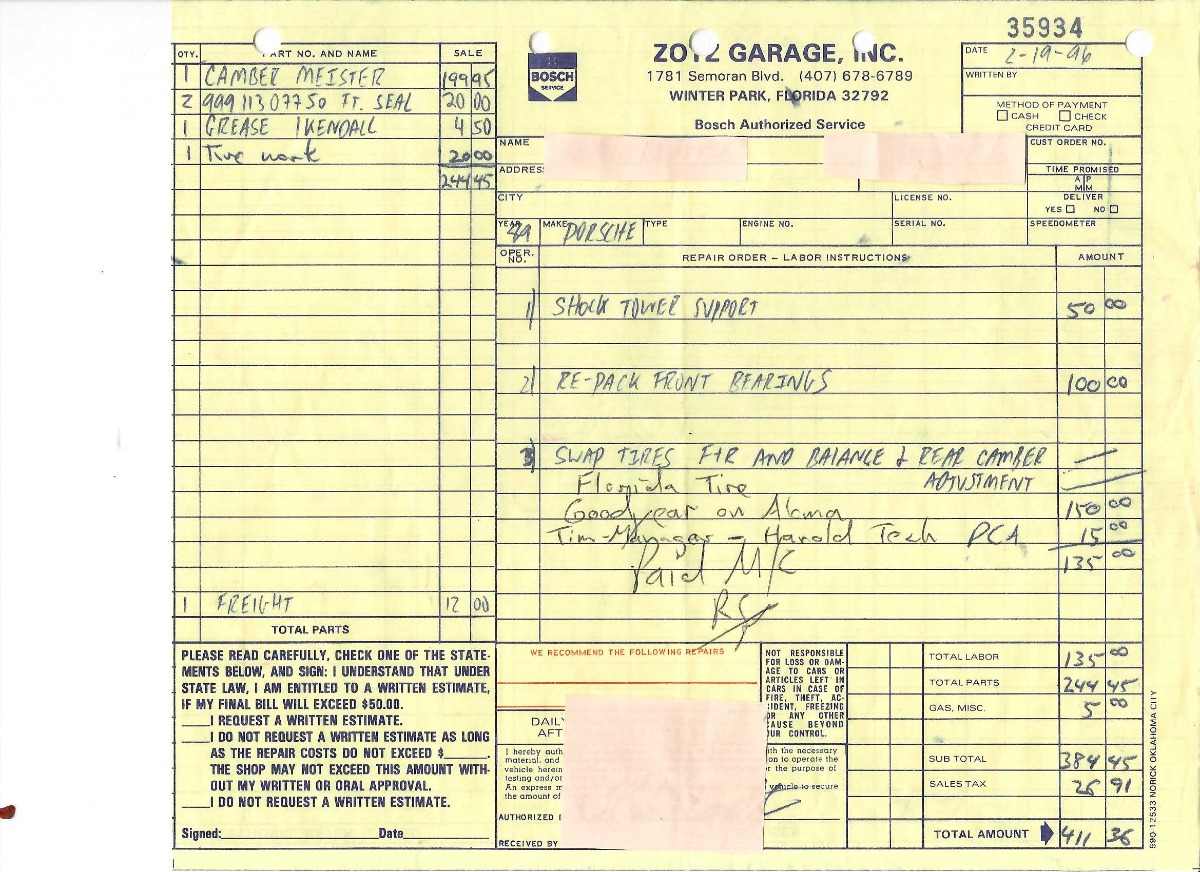 35934
ZOTZ GARAGE, INC.
1781 Semoran Blvd. (407) 678-6789
WINTER PARK, FLORIDA 32792
Bosch Authorized Service
BOSCH
SERVICE
DATE 2-19-96
WRITTEN BY
METHOD OF PAYMENT
CASH CHECK
CREDIT CARD
QTY. PART NO. AND NAME SALE
1 CAMBER MEISTER 199 95
2 999 113 077 50 FT. SEAL 20 00
1 GREASE 1 KENDALL 4 50
1 Tire work 20 00
244 45
1 FREIGHT 12 00
TOTAL PARTS
NAME
CUST ORDER NO.
ADDRESS
TIME PROMISED
A P
M M
DELIVER
YES NO
CITY
LICENSE NO.
YEAR 89 MAKE PORSCHE TYPE ENGINE NO. SERIAL NO. SPEEDOMETER
OPER. NO. REPAIR ORDER – LABOR INSTRUCTIONS AMOUNT
1) SHOCK TOWER SUPPORT 50 00
2) RE-PACK FRONT BEARINGS 100 00
3) SWAP TIRES F+R AND BALANCE & REAR CAMBER —
ADJUSTMENT
Florida Tire
Goodyear on Aloma 150 00
Tim-Manager – Harold Tech PCA 15 00
135 00
Paid M/C
PLEASE READ CAREFULLY, CHECK ONE OF THE STATE-
MENTS BELOW, AND SIGN: I UNDERSTAND THAT UNDER
STATE LAW, I AM ENTITLED TO A WRITTEN ESTIMATE,
IF MY FINAL BILL WILL EXCEED $50.00.
____I REQUEST A WRITTEN ESTIMATE.
____I DO NOT REQUEST A WRITTEN ESTIMATE AS LONG
AS THE REPAIR COSTS DO NOT EXCEED $_____.
THE SHOP MAY NOT EXCEED THIS AMOUNT WITH-
OUT MY WRITTEN OR ORAL APPROVAL.
____I DO NOT REQUEST A WRITTEN ESTIMATE.
Signed: Date
WE RECOMMEND THE FOLLOWING REPAIRS
DAILY
AFT
I hereby auth
material, and
vehicle herein
testing and/or
An express m
the amount of
AUTHORIZED
RECEIVED BY
ith the necessary
ion to operate the
r the purpose of
vehicle to secure
NOT RESPONSIBLE
FOR LOSS OR DAM-
AGE TO CARS OR
ARTICLES LEFT IN
CARS IN CASE OF
FIRE, THEFT, AC-
IDENT, FREEZING
OR ANY OTHER
CAUSE BEYOND
UR CONTROL.
TOTAL LABOR 135 00
TOTAL PARTS 244 45
GAS, MISC. 5 00
SUB TOTAL 384 45
SALES TAX 26 91
TOTAL AMOUNT 411 36
590-12533 NORICK OKLAHOMA CITY